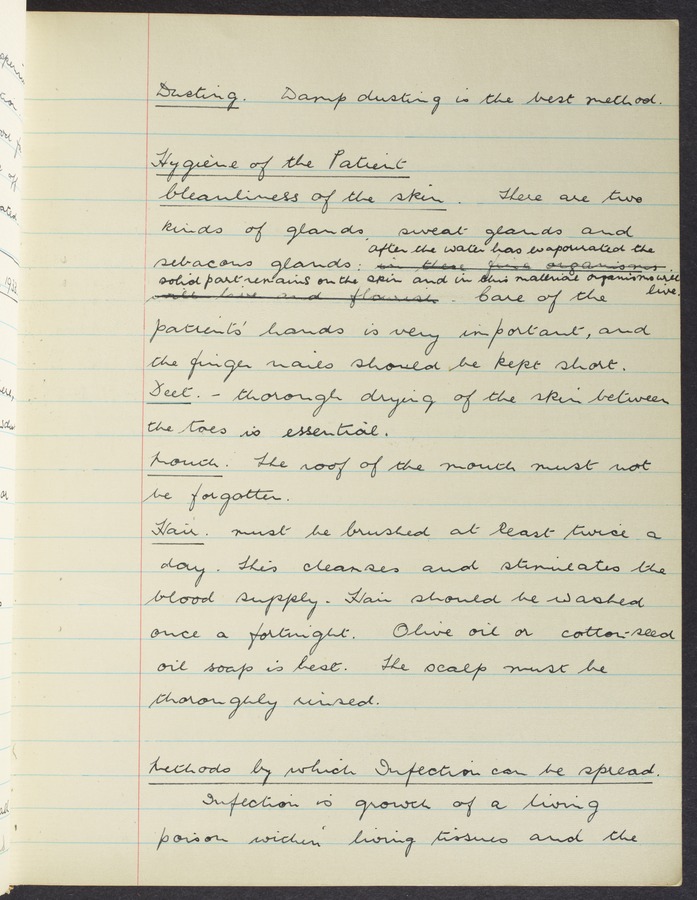 Dusting. Damp dusting is the best method.
Hygiene of the Patient
Cleanliness of the skin. There are two
kinds of glands, sweat glands and
after the water has evapourated the
sebacous glands: in these fine organisms
solid part remains on the skin and in this material organisms will
live.
will live and flourish. Care of the
patients' hands is very important, and
the finger nails should be kept short.
Feet. - thorough drying of the skin between
the toes is essential.
Mouth. The roof of the mouth must not
be forgotten.
Hair. must be brushed at least twice a
day. This cleanses and stimulates the
blood supply. Hair should be washed
once a fortnight. Olive oil or cotton-seed
oil soap is best. The scalp must be
thoroughly rinsed.
Methods by which Infection can be spread.
Infection is growth of a living
poison within living tissues and the